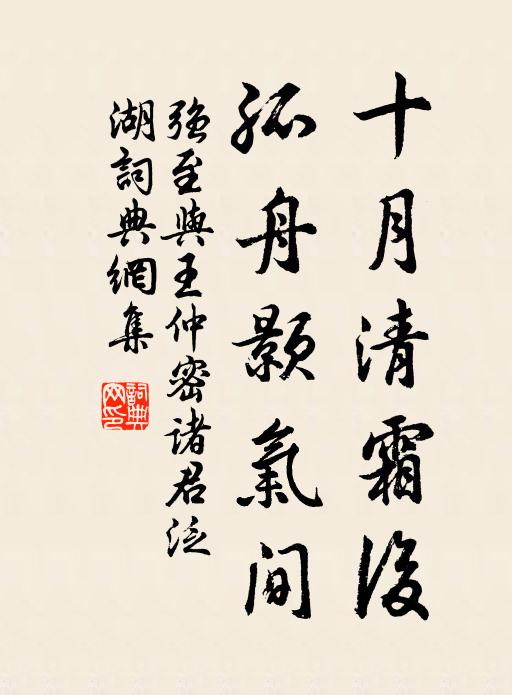 十月清霜後
孤舟顥氣间
強至與王仲密诸君泛
湖詞典網集
詞典網印